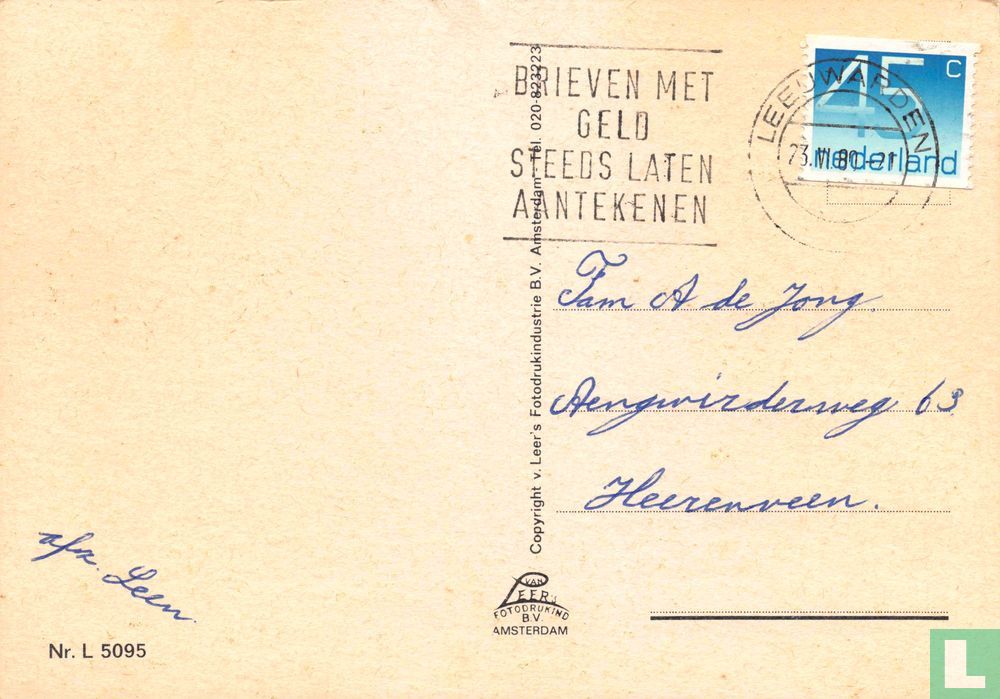 BRIEVEN MET
GELD
STEEDS LATEN
AANTEKENEN
LEEUWARDEN
45 C
nederland
Fam A de Jong.
Aengwirderweg 63
Heerenveen.
Copyright v. Leer's Fotodrukindustrie B.V. Amsterdam - Tel. 020-823223
afz. Leen.
Nr. L 5095
VAN
LEER'S
FOTODRUKIND
B.V.
AMSTERDAM
L